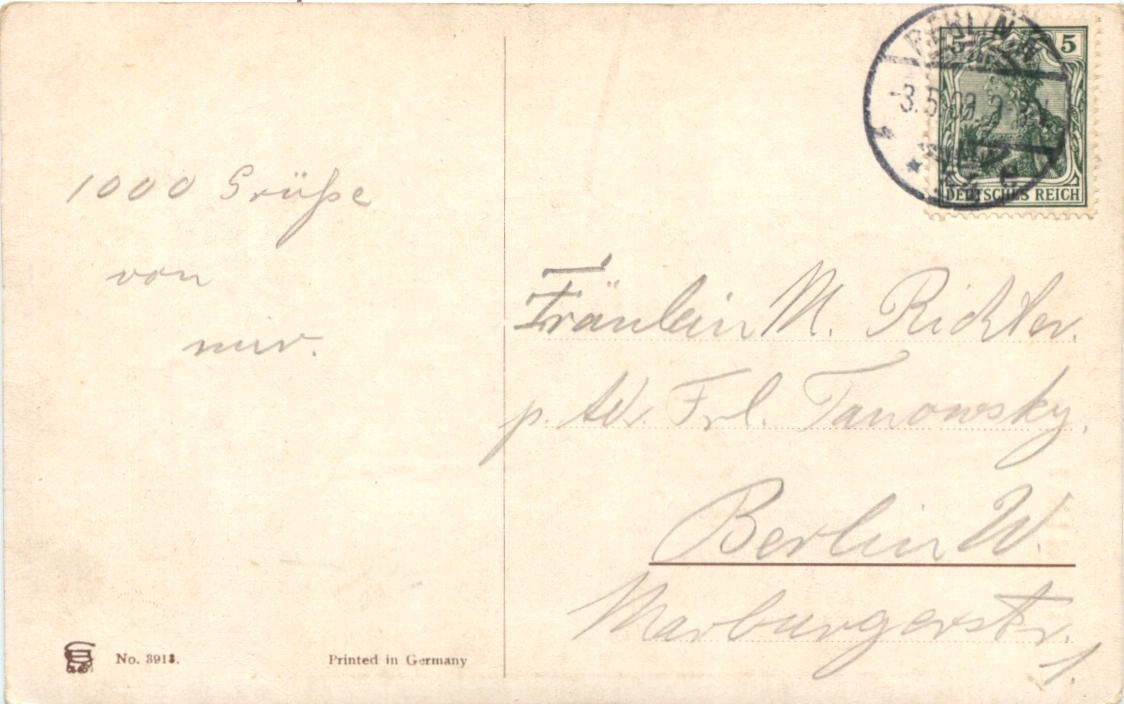 1000 Grüße
von
mir.
BERLIN
-3.5.08.
5 5
DEUTSCHES REICH
Fräulein M. Richter.
p. Adr. Frl. Tanowsky.
Berlin W.
Marburgerstr.
1.
No. 3913.
Printed in Germany